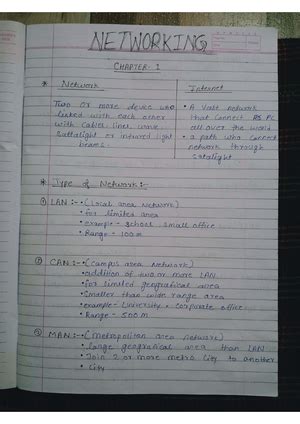 NETWORKING
CHAPTER - 1
* Network
Two Or more device who
linked with each other
with cables, lines, work
Sattalight or infrared light
beams.
Internet
• A Vast network
that connect PC
all over the world
• a path who connect
network through
satalight
* Type of Network :-
① LAN :- • (local area Network)
• for limites area
• exampe - school, small office
• Range - 100 m
② CAN :- • (campus area Network)
• addition of two or more LAN
• for limited geografical area
• Smaller than wide range area
• example - University, corporate office
• Range - 500 m
③ MAN :- • (metropolitan area Network)
• large geografical area than LAN
• Join 2 or more metro city to another
• City